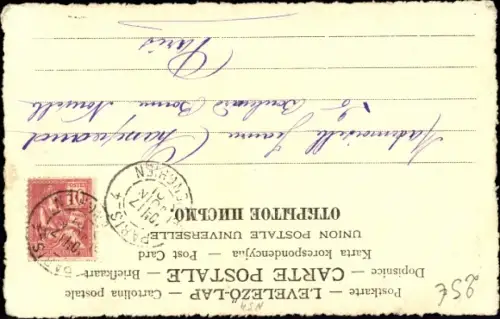 Postkarte – LEVELEZŐ-LAP – Cartolina postale
Dopisnice – CARTE POSTALE – Briefkaart
Karta korespondencyjna – Post Card
UNION POSTALE UNIVERSELLE
ОТКРЫТОЕ ПИСЬМО.
Mademoiselle Jeanne
Boulevard Bonne Nouvelle
Paris
257
PARIS